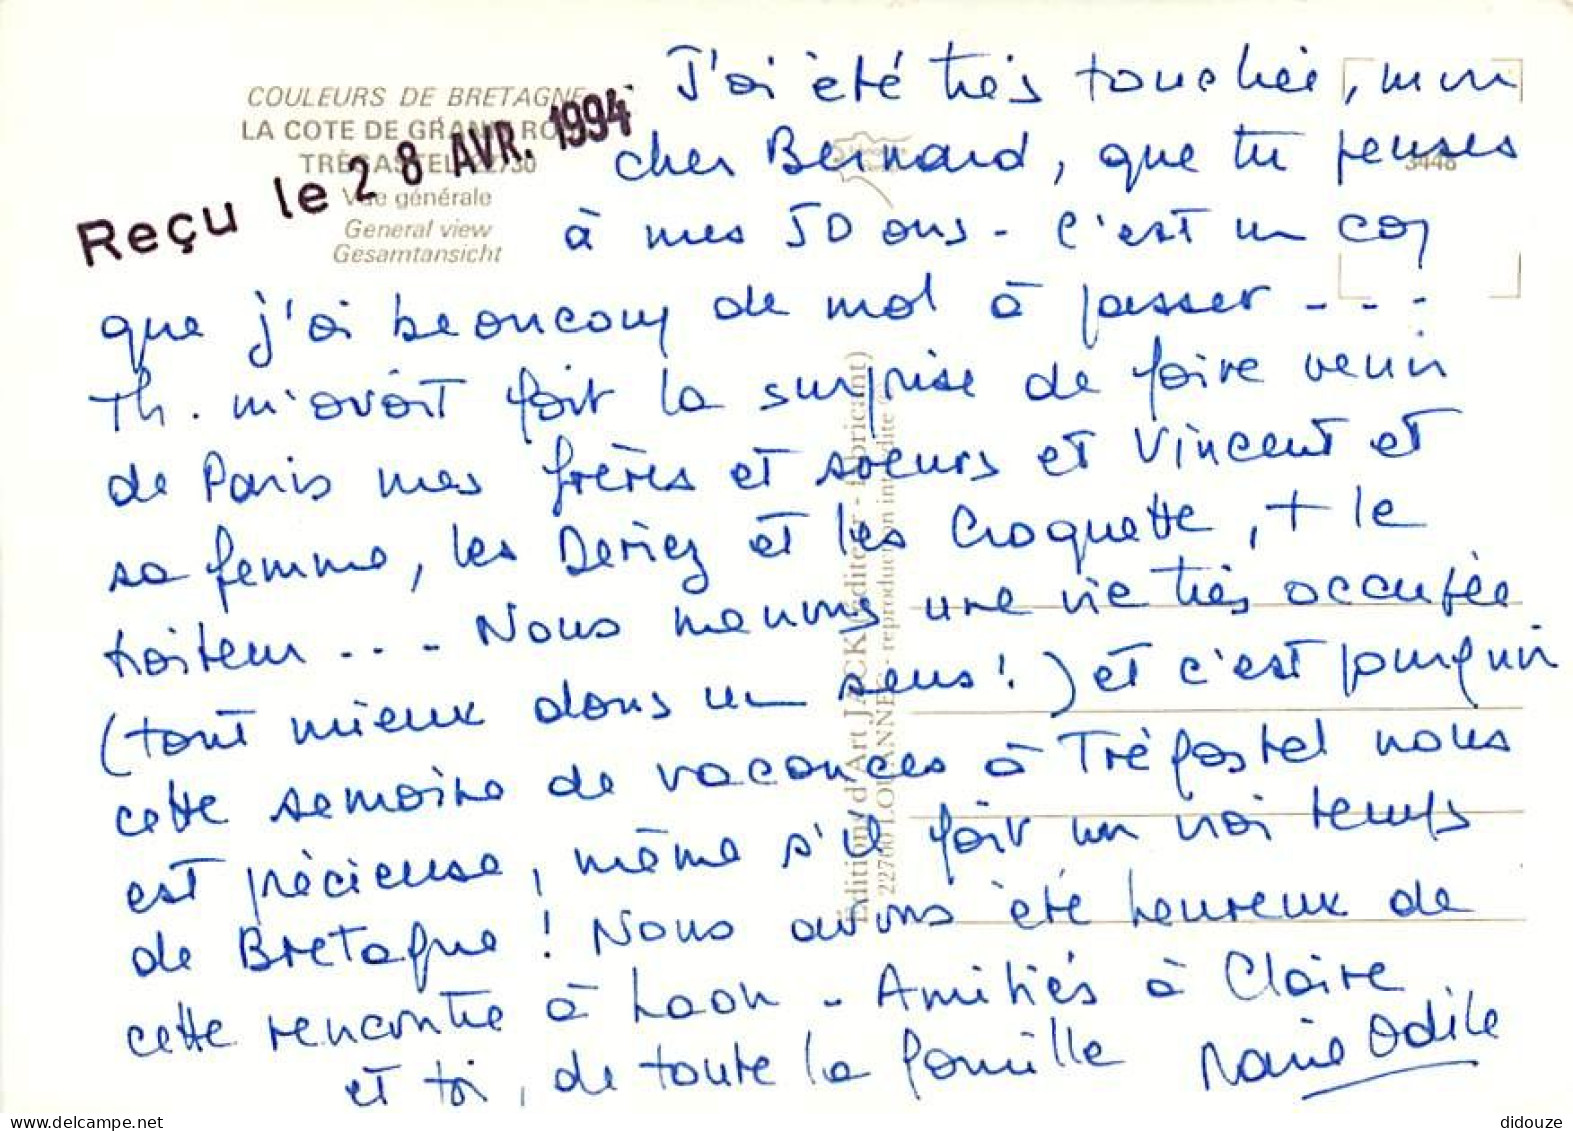 COULEURS DE BRETAGNE
LA COTE DE GRANIT ROSE
TRÉGASTEL 22730
Vue générale
General view
Gesamtansicht
Reçu le 28 AVR. 1994
3448
J'ai été très touchée, mon
cher Bernard, que tu penses
à mes 50 ans - C'est un cap
que j'ai beaucoup de mal à passer - - -
Th. m'avait fait la surprise de faire venir
de Paris mes frères et soeurs et Vincent et
sa femme, les Deriez et les Croquette, + le
traiteur - - - Nous menons une vie très occupée
(tant mieux dans un sens!) et c'est pourquoi
cette semaine de vacances à Trégastel nous
est précieuse, même s'il fait un vrai temps
de Bretagne! Nous avons été heureux de
cette rencontre à Laon - Amitiés à Claire
et toi, de toute la famille Marie Odile
Editions d'Art JACK (éditeur - fabricant)
22700 LOUANNEC - reproduction interdite
delcampe.net
didouze